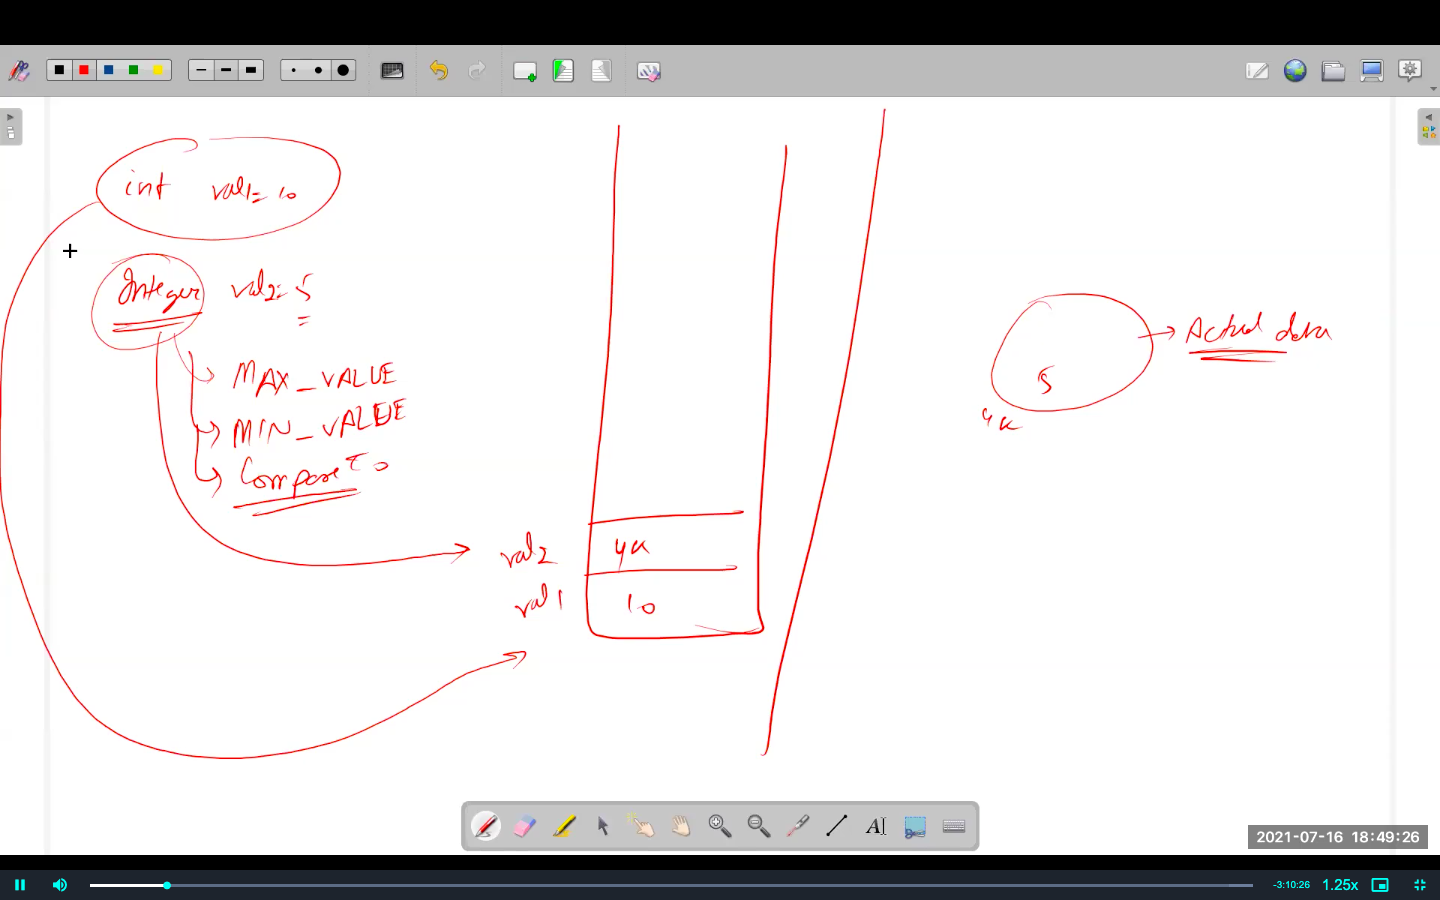 int val1= 10
Integer val2= 5
MAX_VALUE
MIN_VALUE
CompareTo
val2 4k
val1 10
5
4k
Actual data
AI
2021-07-16 18:49:26
-3:10:26 1.25x